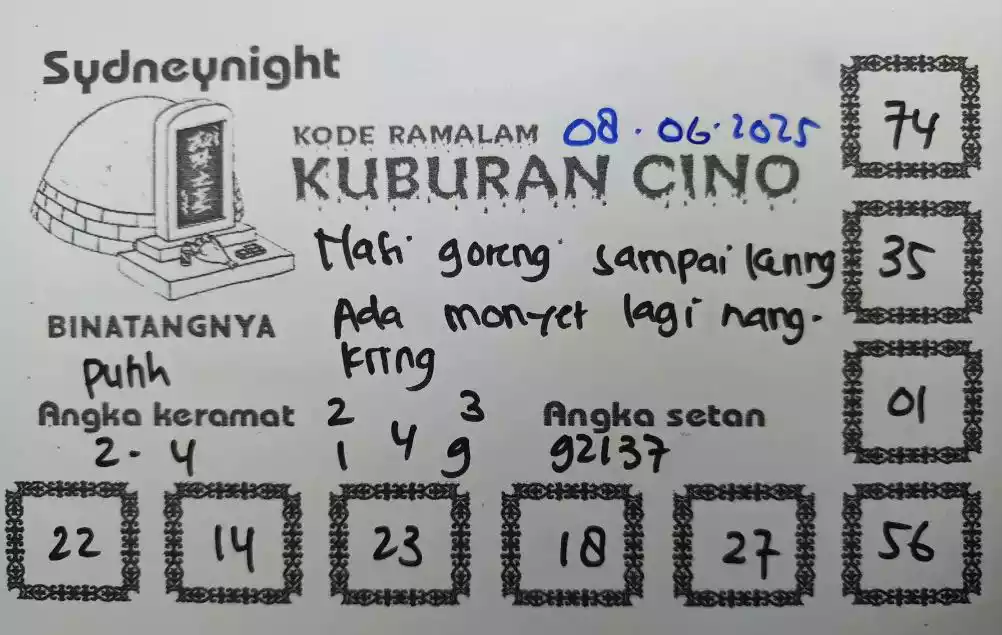 Sydneynight
KODE RAMALAM 08.06.2025
KUBURAN CINO
goreng sampai
Ada monyet lagi nang-
kring
BINATANGNYA
Angka keramat
2 - 4
2 3
1 4 9
Angka setan
92137
74
35
01
22 14 23 18 27 56